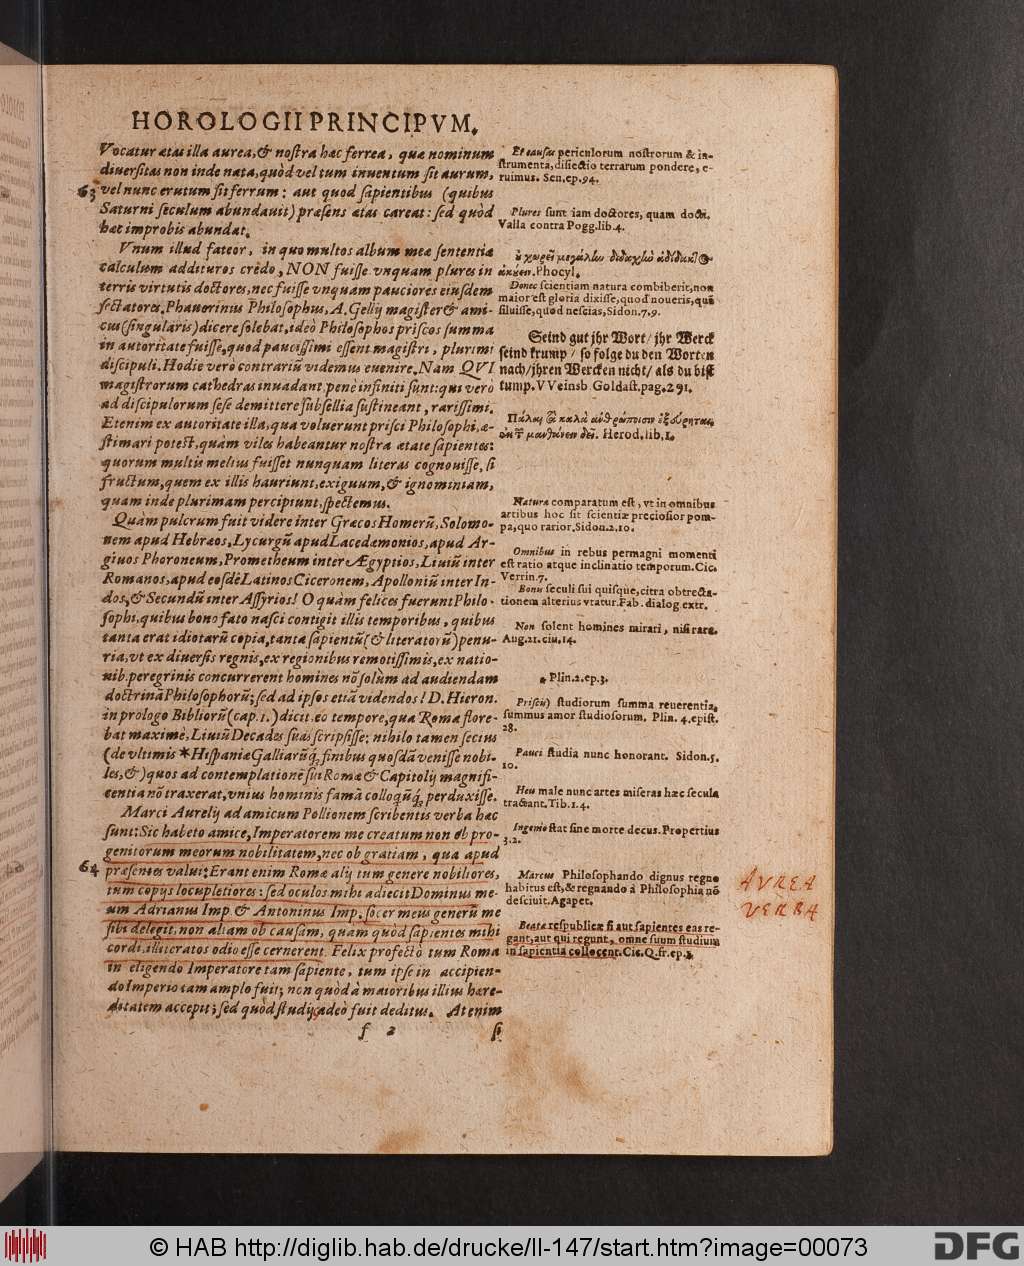 HOROLOGII PRINCIPVM.
Vocatur ætas illa aurea, & nostra hæc ferrea, quæ nominum
diuersitas non inde nata, quòd vel tum inuentum sit aurum,
63 vel nunc erutum sit ferrum: aut quod sapientibus (quibus
Saturni seculum abundauit) præsens ætas careat: sed quòd
hæc improbis abundat.
Vnum illud fateor, in quo multos album meæ sententiæ
calculum addituros crêdo, NON fuisse vnquam plures in
terris virtutis doctores, nec fuisse vnquam pauciores eiusdem
sectatores. Phauorinus Philosophus, A. Gelij magister & ami-
cus (singularis) dicere solebat, ideò Philosophos priscos summa
in autoritate fuisse, quod paucissimi essent magistri, plurimi
discipuli. Hodie verò contrariũ videmus euenire. Nam QVI
magistrorum cathedras inuadant, penè infiniti sunt: qui verò
ad discipulorum sese demittere subsellia sustineant, rarissimi.
Etenim ex autoritate illa, qua voluerunt prisci Philosophi, æ-
stimari potest, quàm viles habeantur nostra ætate sapientes:
quorum multis melius fuisset nunquam literas cognouisse, si
fructum, quem ex illis hauriunt, exiguum, & ignominiam,
quam inde plurimam percipiunt, spectemus.
Quàm pulcrum fuit videre inter Græcos Homerũ, Solomo-
nem apud Hebræos, Lycurgũ apud Lacedæmonios, apud Ar-
giuos Phoroneum, Prometheum inter Ægyptios, Liuiũ inter
Romanos, apud eosdẽ Latinos Ciceronem, Apolloniũ inter In-
dos, & Secundũ inter Assyrios! O quàm felices fuerunt Philo-
sophi, quibus bono fato nasci contigit illis temporibus, quibus
tanta erat idiotarũ copia, tanta sapientũ (& literatorũ) penu-
ria, vt ex diuersis regnis, ex regionibus remotissimis, ex natio-
nib. peregrinis concurrerent homines nõ solùm ad audiendam
doctrinã Philosophorũ; sed ad ipsos etiã videndos! D. Hieron.
in prologo Bibliorũ (cap. 1.) dicit, eo tempore, qua Roma flore-
bat maximè, Liuiũ Decades suas scripsisse; nihilo tamen secius
(de vltimis * Hispaniæ Galliarũq; finibus quosdã venisse nobi-
les, &) quos ad contemplationẽ sui Romæ & Capitolij magnifi-
centia nõ traxerat, vnius hominis famã colloquũq; perduxisse.
Marci Aurelij ad amicum Pollionem scribentis verba hæc
sunt: Sic habeto amice, Imperatorem me creatum non ob pro-
genitorum meorum nobilitatem, nec ob gratiam, qua apud
64 præsentes valui: Erant enim Romæ alij tum genere nobiliores,
tum copijs locupletiores: sed oculos mihi adiecit Dominus me-
um Adrianus Imp. & Antoninus Imp. socer meus generũ me
sibi delegit, non aliam ob causam, quam quòd sapientes mihi
cordi, illiteratos odio esse cernerent. Felix profectò tum Roma
in eligendo Imperatore tam sapiente, tum ipse in accipien-
do Imperio tam amplo fuit; non quòd à maioribus illius hære-
ditatem accepit; sed quòd studijs adeò fuit deditus. At enim
f 2 si
Et causas periculorum nostrorum & in-
strumenta, disiectio terrarum pondere, e-
ruimus. Sen. ep. 94.
Plures sunt iam doctores, quam docti.
Valla contra Pogg. lib. 4.
Phocyl.
Donec scientiam natura combiberit, non
maior est gloria dixisse, quod noueris, quã
siluisse, quod nescias, Sidon. 7, 9.
Seind gut jhr Wort / jhr Werck
seind krump / so folge du den Worten
nach / jhren Wercken nicht / als du bist
tump. VVeinsb. Goldast. pag. 291.
Herod. lib, 1.
Natura comparatum est, vt in omnibus
artibus hoc sit scientiæ preciosior pom-
pa, quo rarior. Sidon. 2, 10.
Omnibus in rebus permagni momenti
est ratio atque inclinatio temporum. Cic.
Verrin. 7.
Bonis seculi sui quisque, citra obtrecta-
tionem alterius vtatur. Fab. dialog extr.
Non solent homines mirari, nisi rara.
Aug. 21. ciu. 14.
* Plin. 2. ep. 3.
Priscis studiorum summa reuerentia,
summus amor studiosorum. Plin. 4. epist.
28.
Pauci studia nunc honorant. Sidon. 5.
10.
Heu male nunc artes miseras hæc secula
tractant. Tib. 1. 4.
Ingenio stat sine morte decus. Propertius
3. 2.
Marcus Philosophando dignus regno
habitus est, & regnando à Philosophia nõ
desciuit. Agapet.
Beatæ respublicæ si aut sapientes eas re-
gant, aut qui regunt, omne suum studium
in sapientia collocent. Cic. Q. fr. ep. 1.
AVREA
VERBA
© HAB http://diglib.hab.de/drucke/ll-147/start.htm?image=00073
DFG